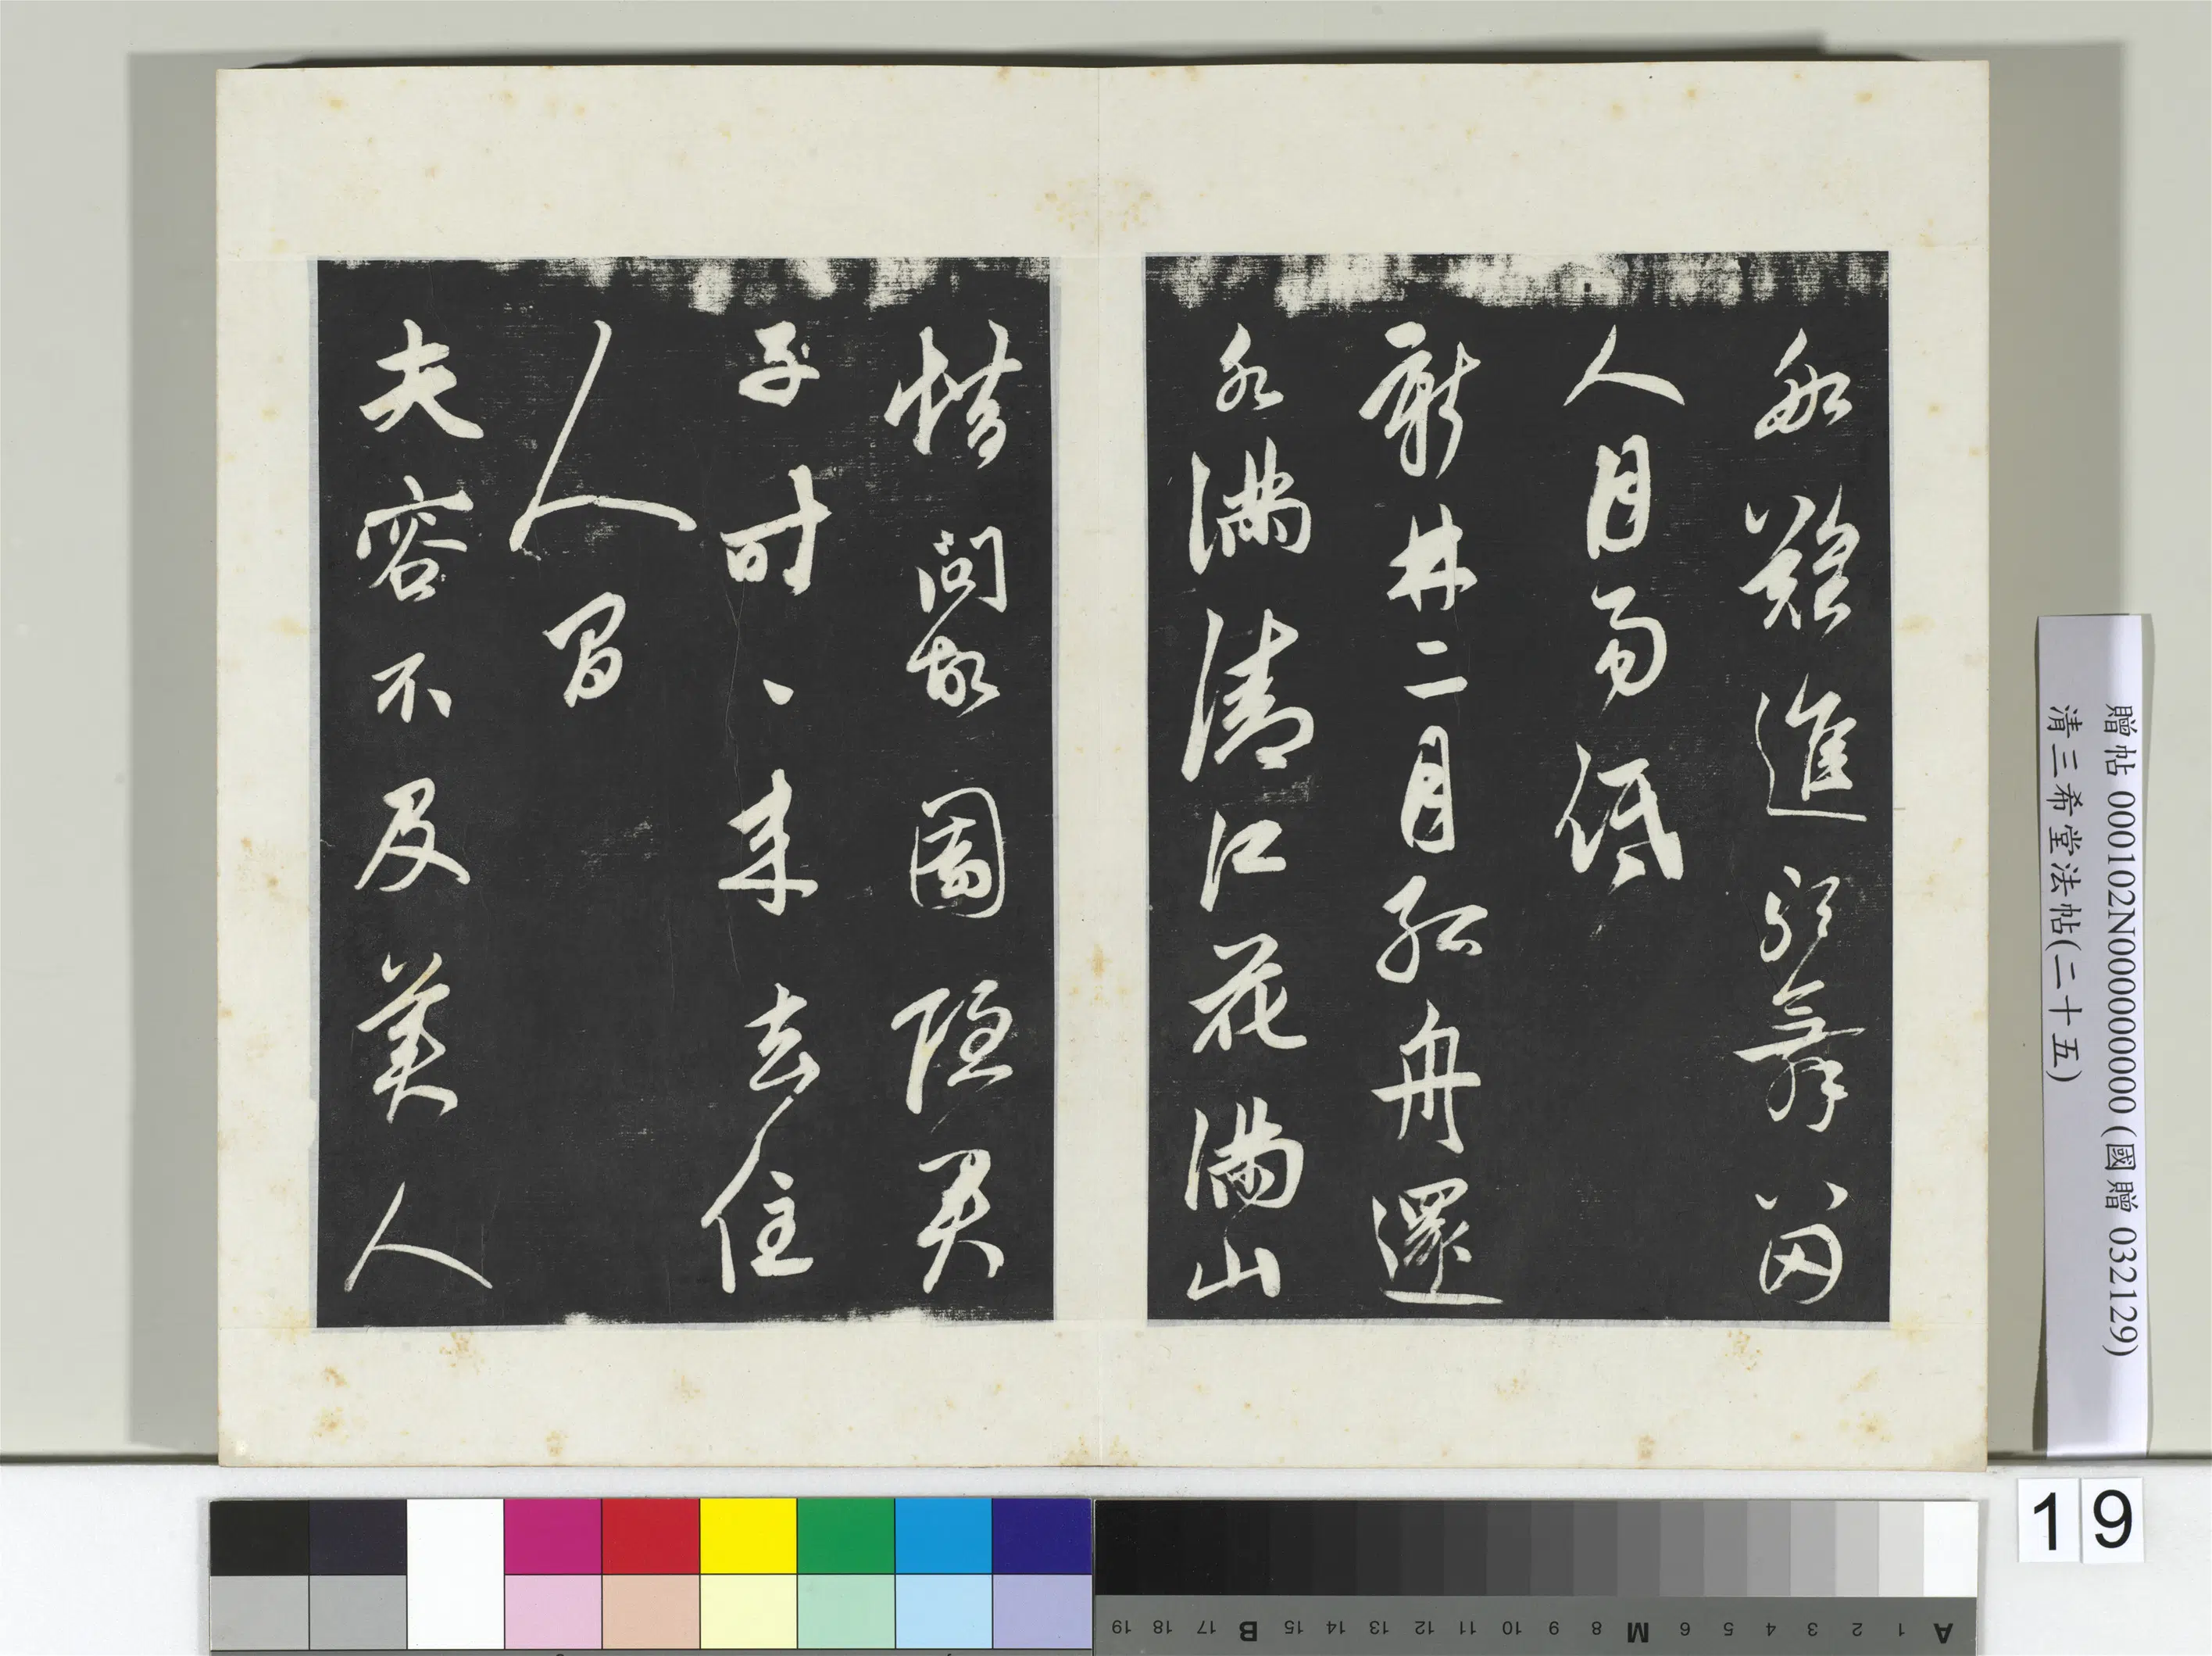 船難進歌舞留
人月易低
新林二月孤舟還
水滿清江花滿山
借問故園隱君
子時、來去住
人間
夫容不及美人
贈帖 000102N000000000 (國贈 032129)
清三希堂法帖(二十五)
19
A 1 2 3 4 5 6 M 8 9 10 11 12 13 14 15 B 17 18 19